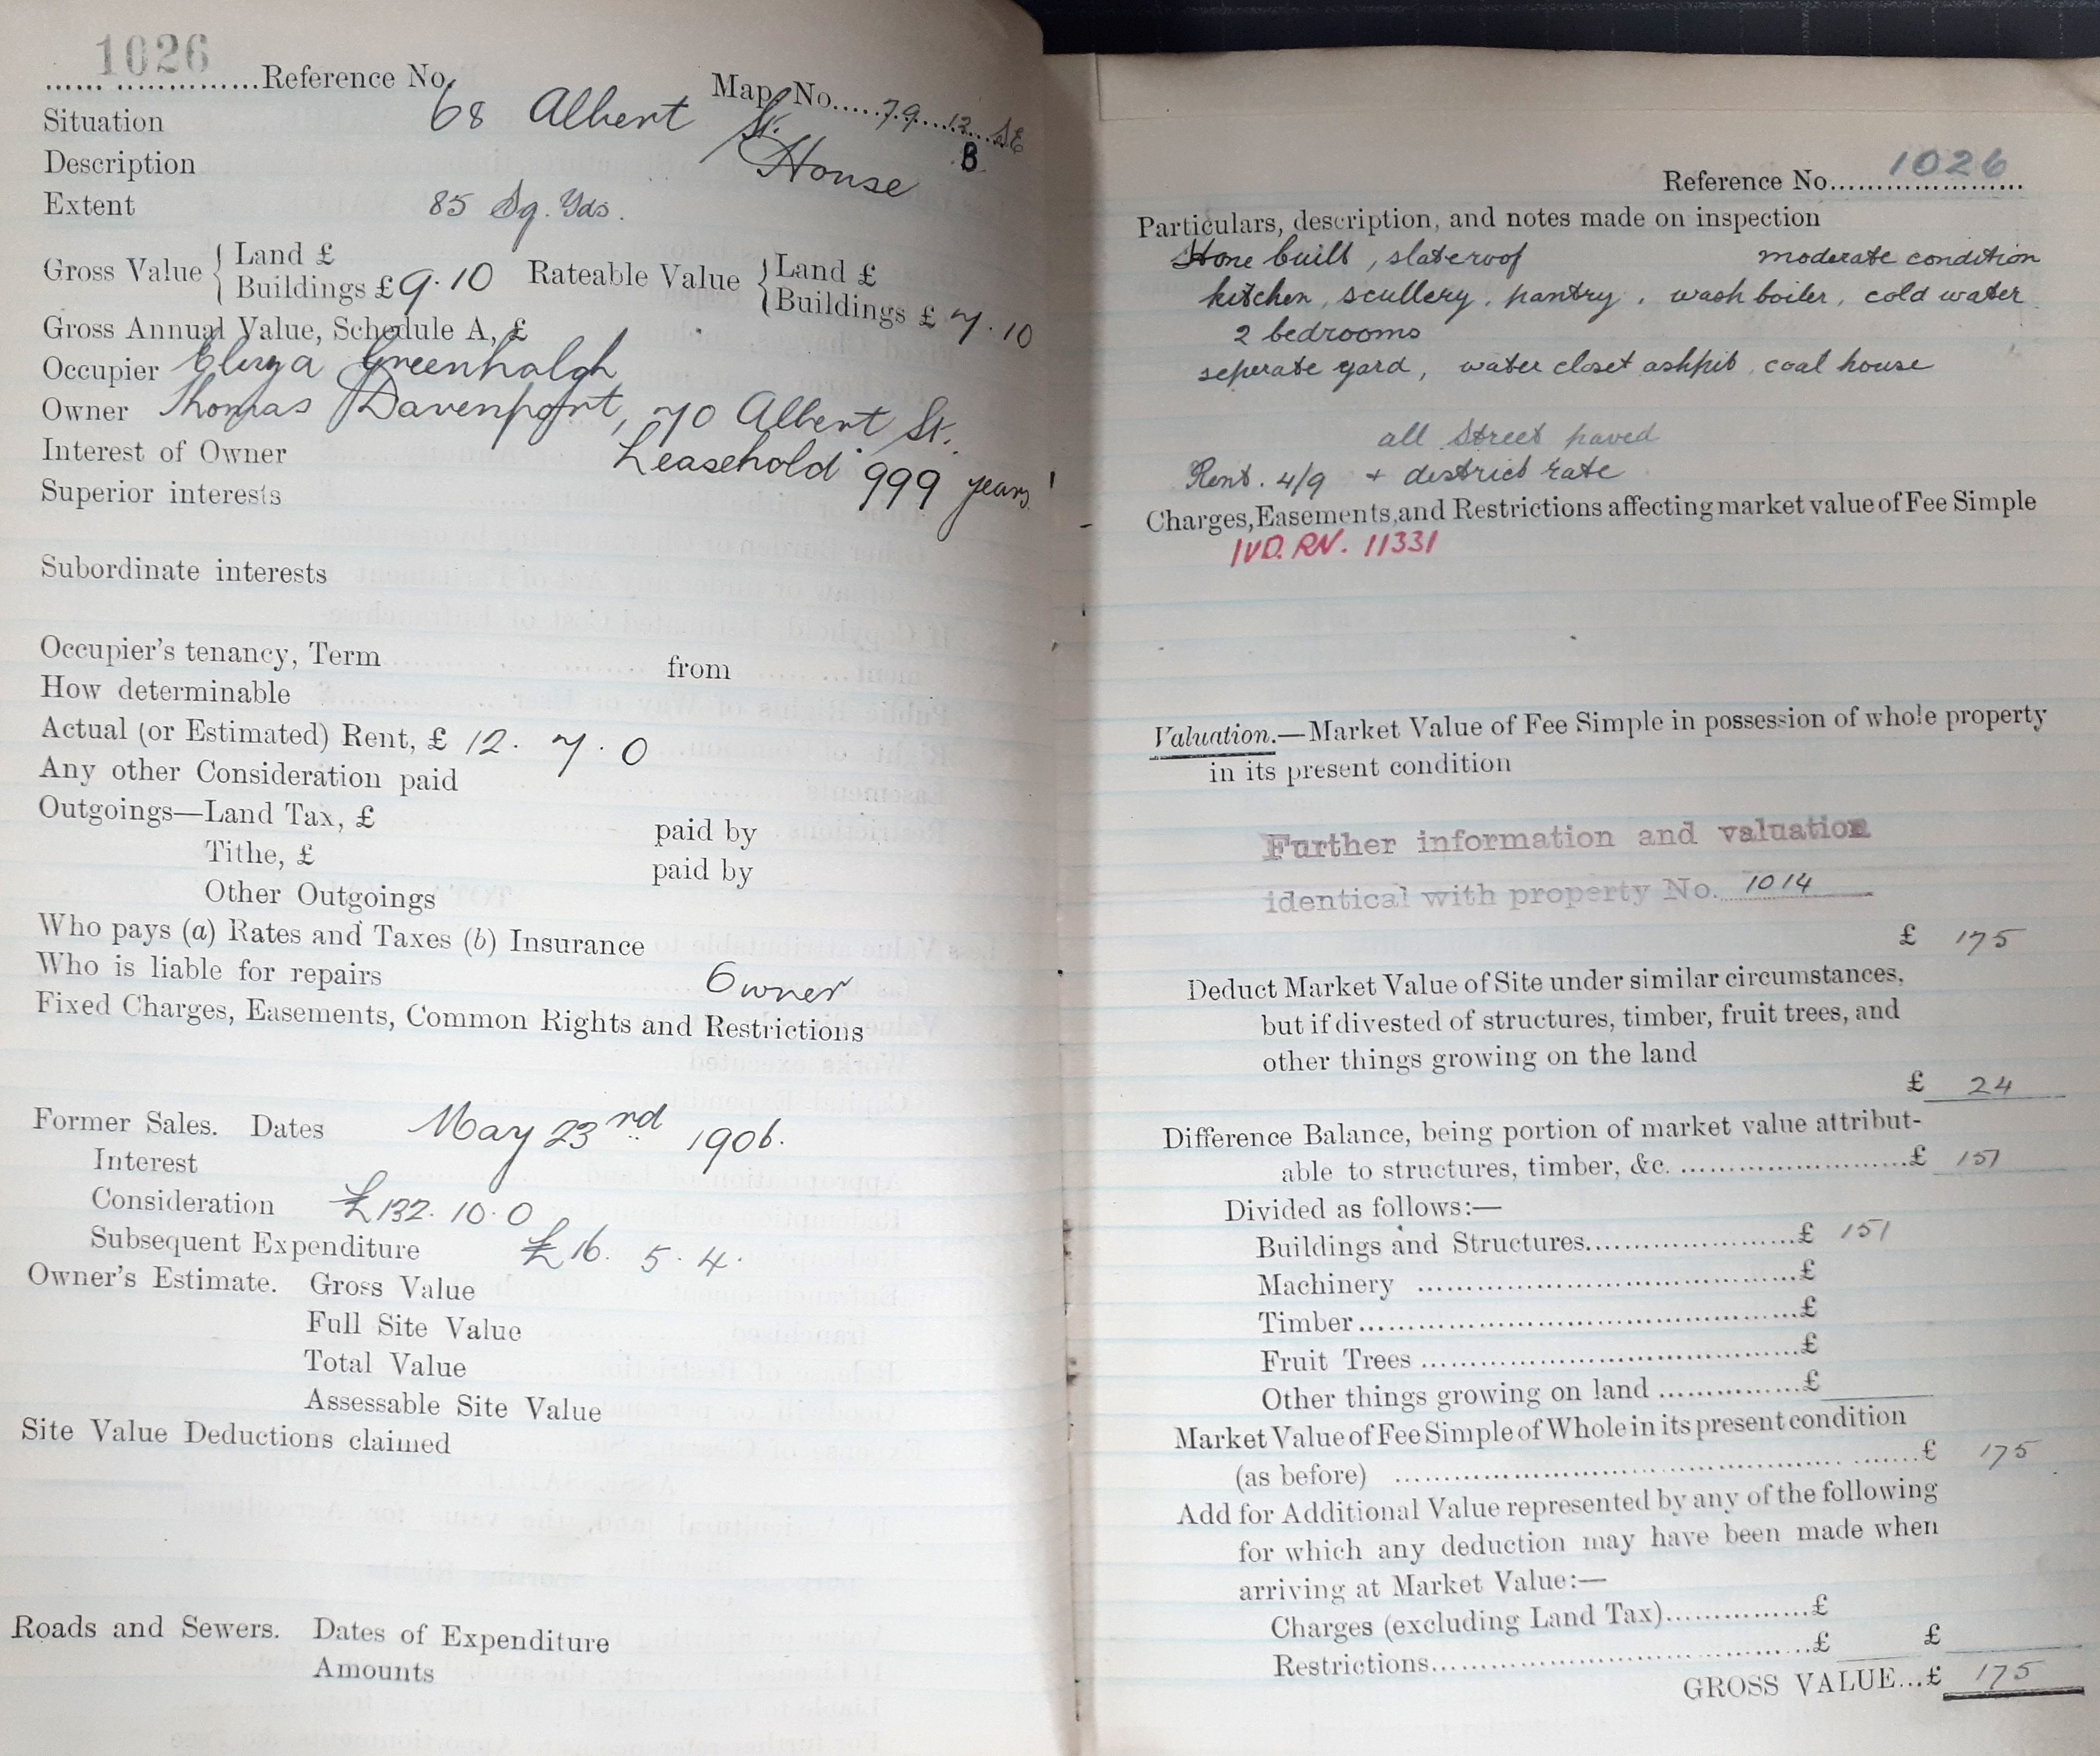 1026
Reference No. Map No. 79 12 SE
B
Situation 68 Albert St.
Description House
Extent 85 Sq. Yds.
Gross Value { Land £
Buildings £ 9.10
Rateable Value { Land £
Buildings £ 7.10
Gross Annual Value, Schedule A, £
Occupier Eliza Greenhalgh
Owner Thomas Davenport, 70 Albert St.
Interest of Owner Leasehold 999 years
Superior interests
Subordinate interests
Occupier's tenancy, Term from
How determinable
Actual (or Estimated) Rent, £ 12. 7. 0
Any other Consideration paid
Outgoings—Land Tax, £ paid by
Tithe, £ paid by
Other Outgoings
Who pays (a) Rates and Taxes (b) Insurance
Who is liable for repairs Owner
Fixed Charges, Easements, Common Rights and Restrictions
Former Sales. Dates May 23rd 1906.
Interest
Consideration £132. 10. 0
Subsequent Expenditure £16. 5. 4.
Owner's Estimate. Gross Value
Full Site Value
Total Value
Assessable Site Value
Site Value Deductions claimed
Roads and Sewers. Dates of Expenditure
Amounts
Reference No. 1026
Particulars, description, and notes made on inspection
Stone built, slate roof moderate condition
kitchen, scullery, pantry, wash boiler, cold water
2 bedrooms
seperate yard, water closet ashpit, coal house
all Street paved
Rent. 4/9 + district rate
Charges, Easements, and Restrictions affecting market value of Fee Simple
IVD. RN. 11331
Valuation.—Market Value of Fee Simple in possession of whole property
in its present condition
Further information and valuation
identical with property No. 1014
£ 175
Deduct Market Value of Site under similar circumstances,
but if divested of structures, timber, fruit trees, and
other things growing on the land
£ 24
Difference Balance, being portion of market value attribut-
able to structures, timber, &c. £ 151
Divided as follows:—
Buildings and Structures £ 151
Machinery £
Timber £
Fruit Trees £
Other things growing on land £
Market Value of Fee Simple of Whole in its present condition
(as before) £ 175
Add for Additional Value represented by any of the following
for which any deduction may have been made when
arriving at Market Value:—
Charges (excluding Land Tax) £
Restrictions £ £
GROSS VALUE...£ 175